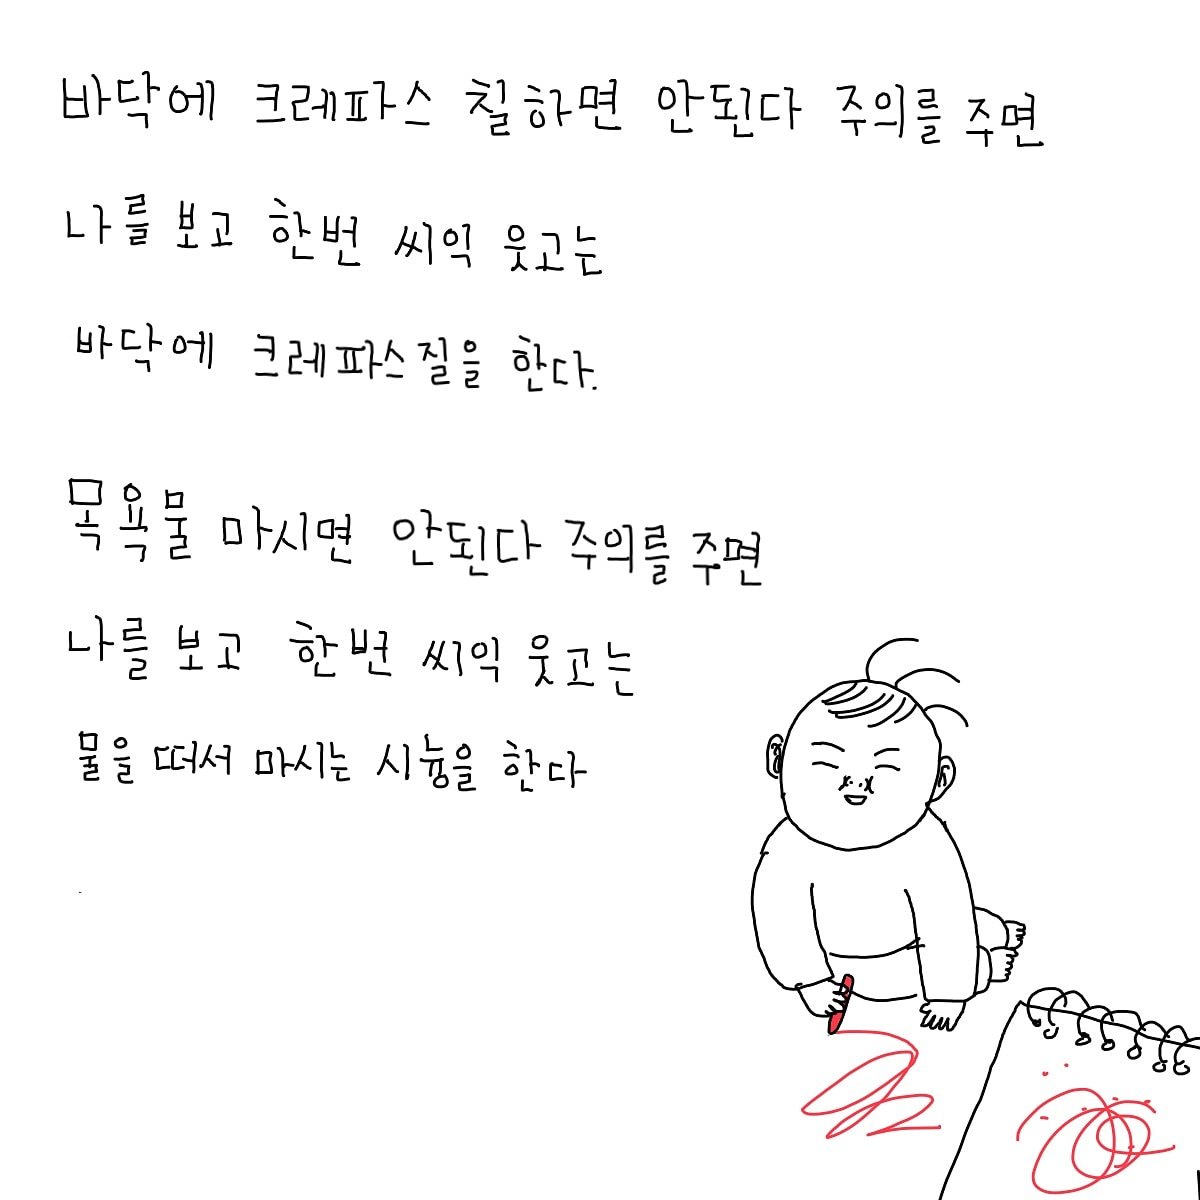 바닥에 크레파스 칠하면 안된다 주의를 주면
나를 보고 한번 씨익 웃고는
바닥에 크레파스질을 한다.
목욕물 마시면 안된다 주의를 주면
나를 보고 한번 씨익 웃고는
물을 떠서 마시는 시늉을 한다